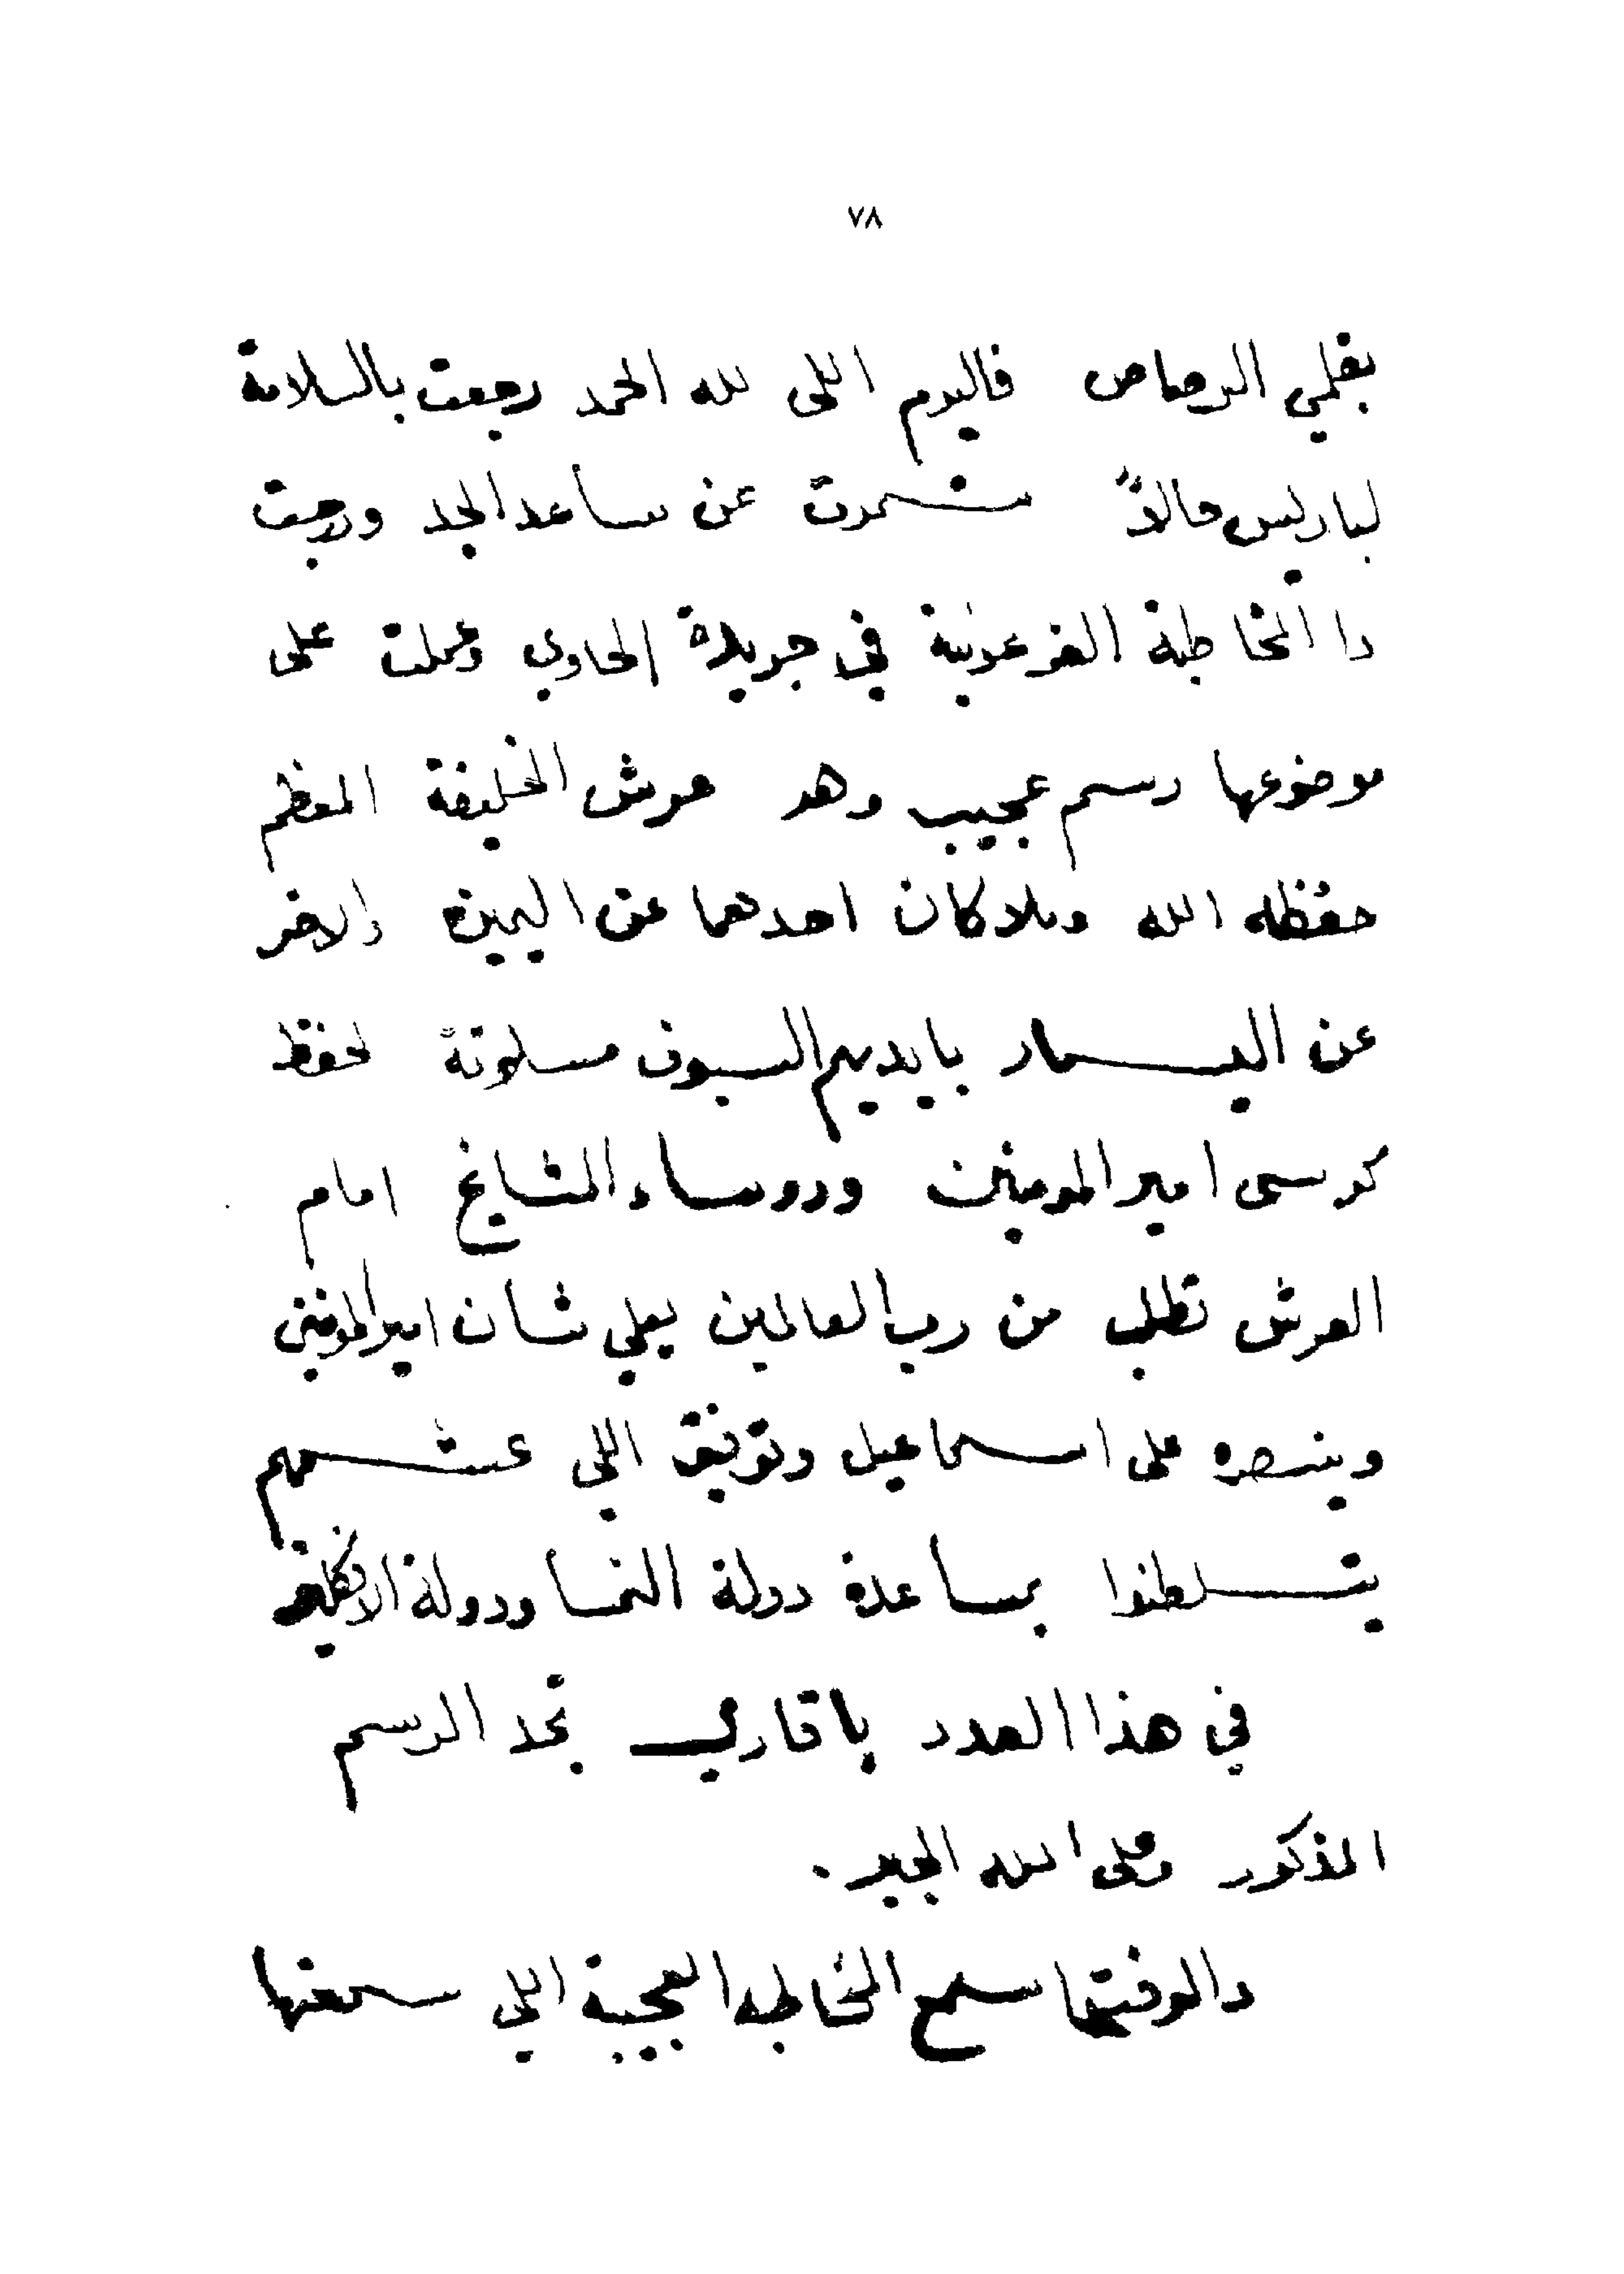 ٧٨
بقلمي الرصاص فاليوم اللى لله الحمد رجعت بالسلامة
لباريس حالاً شمرت عن ساعد الجد ودرجت
دا المخاطبة الفرعونية في جريدة الحاوي وعملت على
موضوعها رسم عجيب وهو عرش الخليفة المعظم
حفظه الله وملاكان احدهما عن اليمين والاخر
عن اليسار بايديهم السيوف مسلوتة لحفظ
كرسى امير المومنين وروساء المشايخ امام
العرش تطلب من رب العالمين يعلي شان امير المومنين
وينصره على اسماعيل وتوفيق اللي عشمهم
يتسلطنوا بمساعدة دولة النمسا ودولة الانكليز
في هذا العدد يا قاري تجد الرسم
المذكور وعلى الله الجبر.
دالوقت اسمع المخاطبه العجيبة اللي سمعتها